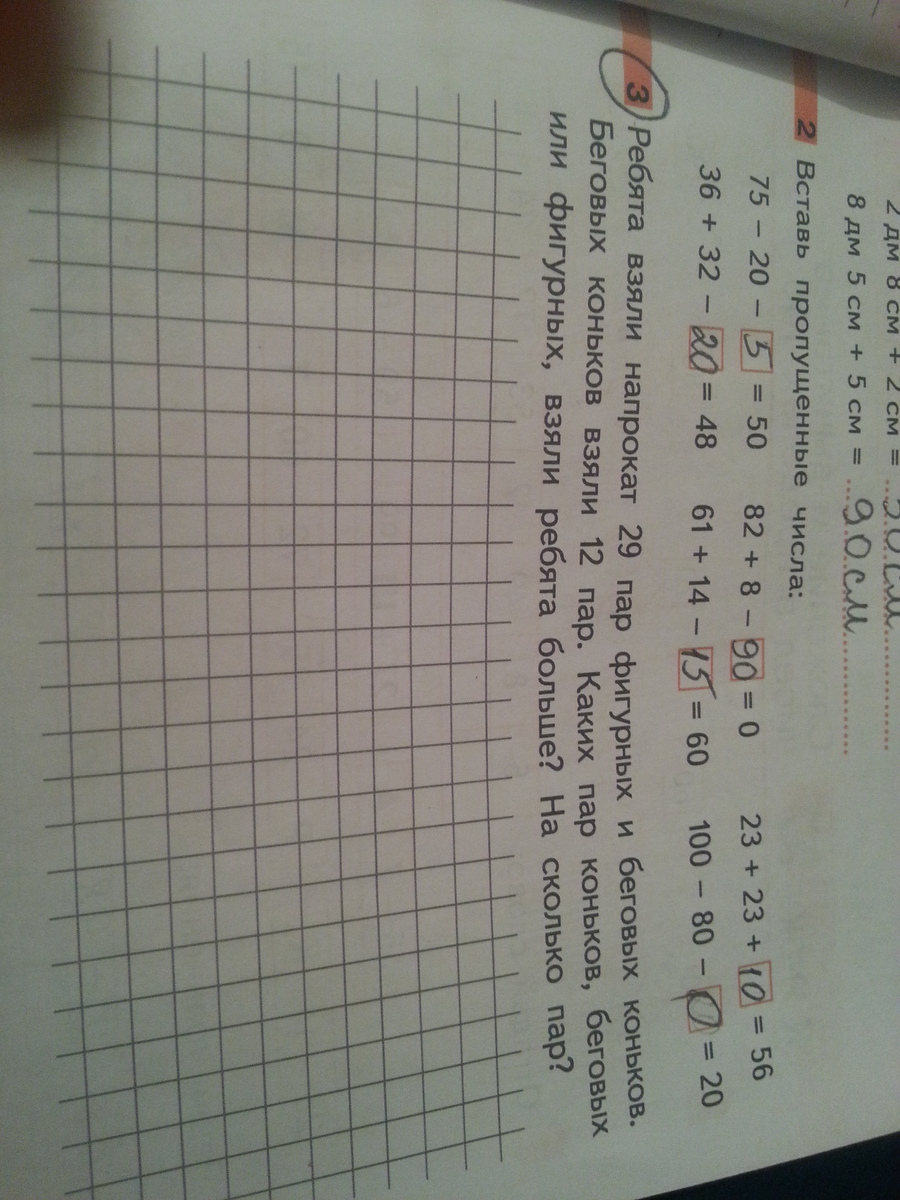 2 дм 8 см + 2 см = 30 см
8 дм 5 см + 5 см = 90 см
2 Вставь пропущенные числа:
75 − 20 − 5 = 50 82 + 8 − 90 = 0 23 + 23 + 10 = 56
36 + 32 − 20 = 48 61 + 14 − 15 = 60 100 − 80 − 0 = 20
3 Ребята взяли напрокат 29 пар фигурных и беговых коньков.
Беговых коньков взяли 12 пар. Каких пар коньков, беговых
или фигурных, взяли ребята больше? На сколько пар?